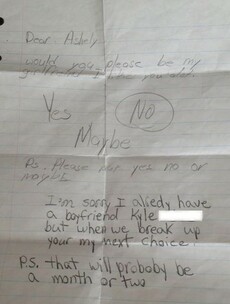 Dear Ashely
would you please be my
girlfriend
Yes NO
Maybe
Ps. Please put yes no or
maybe
I'm sorry I alredy have
a boyfriend Kyle
but when we break up
your my next choice.
P.S. that will probaby be
a month or two